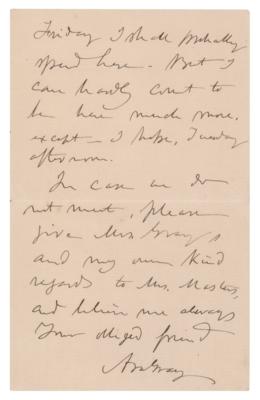 Friday I shall probably
spend here. But I
can hardly count to
be here much more.
except – I hope, Tuesday
afternoon.
In case we do
not meet, please
give Mrs. Gray's
and my own kind
regards to Mrs. Masters,
and believe me always
Your obliged friend
Asa Gray